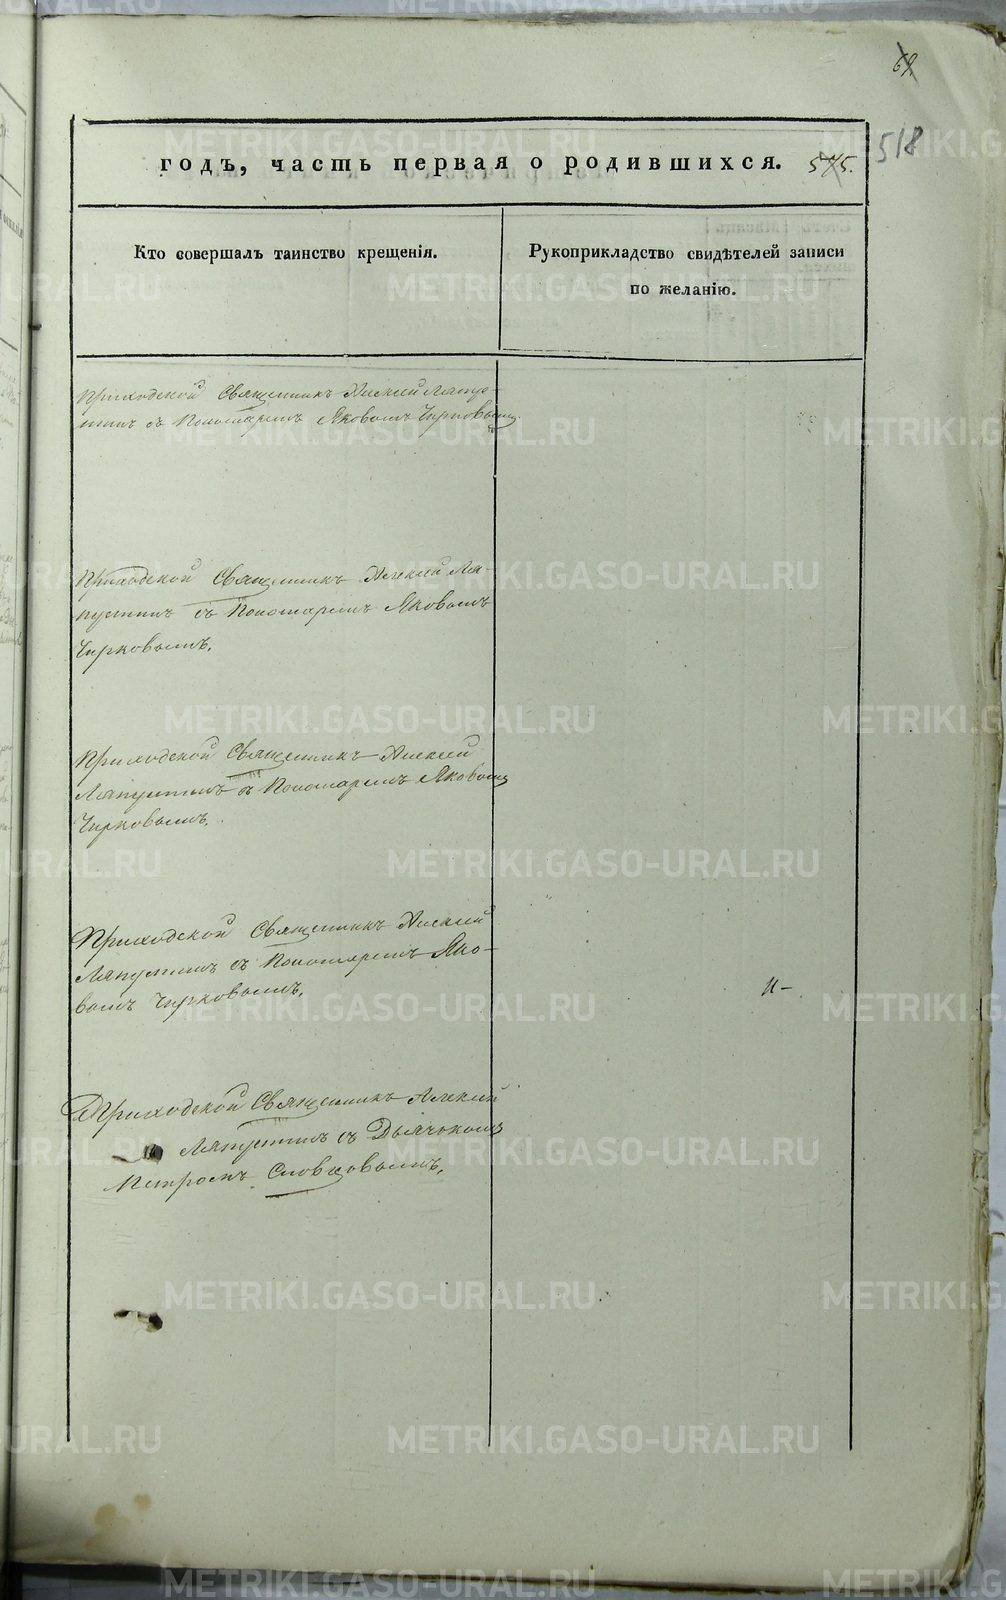 69.
518
годъ, часть первая о родившихся. 575.
Кто совершалъ таинство крещенія.
Рукоприкладство свидѣтелей записи
по желанію.
Приходской Священникъ Алексій Ляпу-
стинъ съ Пономаремъ Яковомъ Чирковымъ
Приходской Священникъ Алексій Ля-
пустинъ съ Пономаремъ Яковомъ
Чирковымъ.
Приходской Священникъ Алексій
Ляпустинъ съ Пономаремъ Яковомъ
Чирковымъ.
Приходской Священникъ Алексій
Ляпустинъ съ Пономаремъ Яко-
вомъ Чирковымъ.
Приходской Священникъ Алексій
Ляпустинъ съ Дьячкомъ
Петромъ Словцовымъ.
METRIKI.GASO-URAL.RU